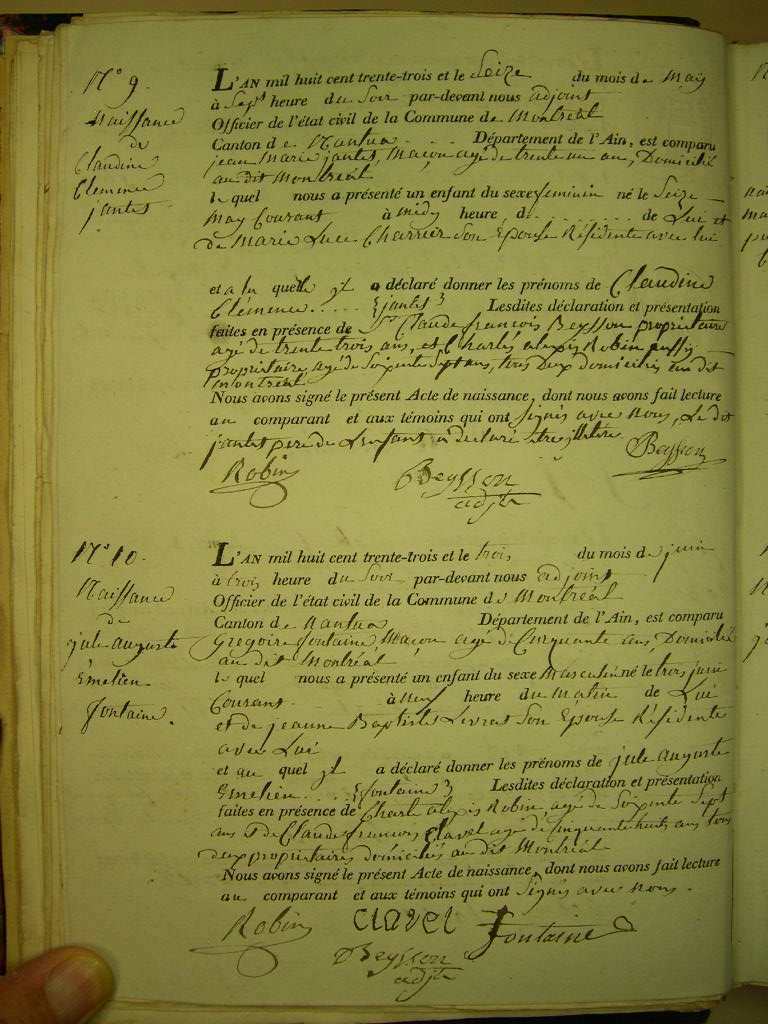 N° 9.
Naissance
de
Claudine
Clemence
jantet
L'AN mil huit cent trente-trois et le Seize du mois de May
à Sept heure du Soir par-devant nous adjoint
Officier de l'état civil de la Commune de Montréal
Canton de Nantua Département de l'Ain, est comparu
jean Marie jantet, Maçon agé de trente un an, Domicilié
au dit Montréal
le quel nous a présenté un enfant du sexe feminin né le Seize
May Courant à midy heure, d . . . . . . . . de Lui et
de Marie Luce Charrier Son Epouse Résidente avec lui
et a la quelle il a déclaré donner les prénoms de Claudine
Clémence . . . . {jantet} Lesdites déclaration et présentation
faites en présence de Sr Claude françois Beysson propriétaire
agé de trente trois ans, et Charles alexis Robin aussi
propriétaire, agé de Soixente Sept ans, tous Deux domiciliés au dit
Montréal
Nous avons signé le présent Acte de naissance, dont nous avons fait lecture
au comparant et aux témoins qui ont Signés avec Nous, Le dit
jantet pere de L'enfant a déclaré etre illitéré
Robin Beysson Beysson
adjt
N° 10.
Naissance
de
jule auguste
Emelien
fontaine.
L'AN mil huit cent trente-trois et le trois du mois de juin
à trois heure du Soir par-devant nous adjoint
Officier de l'état civil de la Commune de Montréal
Canton de Nantua Département de l'Ain, est comparu
Gregoire fontaine, Maçon agé de Cinquante ans, Domicilié
au dit Montréal
le quel nous a présenté un enfant du sexe Masculin né le trois juin
Courant à Neuf heure du Matin de Lui
et de jeanne Baptiste Livrat Son Epouse Résidente
avec Lui
et au quel il a déclaré donner les prénoms de jule auguste
Emelien . . . {fontaine} Lesdites déclaration et présentation
faites en présence de Charle alexis Robin agé de Soixente Sept
ans & de Claude francois Clavel agé de Cinquante huit ans tous
deux propriétaires domiciliés au dit Montréal
Nous avons signé le présent Acte de naissance, dont nous avons fait lecture
au comparant et aux témoins qui ont Signés avec nous.
Robin Clavel Fontaine
Beysson
adjt